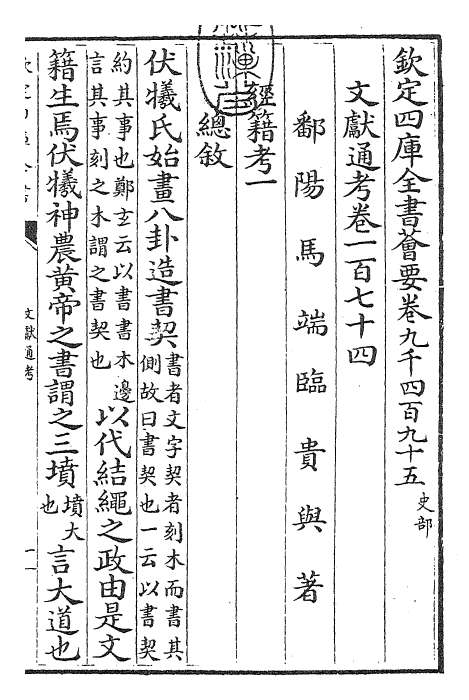 欽定四庫全書薈要卷九千四百九十五 史部
文獻通考卷一百七十四
鄱陽馬端臨貴與著
經籍考一
總敘
伏犧氏始畫八卦造書契書者文字契者刻木而書其側故曰書契也一云以書契
約其事也鄭𤣥云以書書木邊言其事刻之木謂之書契也以代結繩之政由是文
籍生焉伏犧神農黄帝之書謂之三墳墳大也言大道也
文獻通考
一